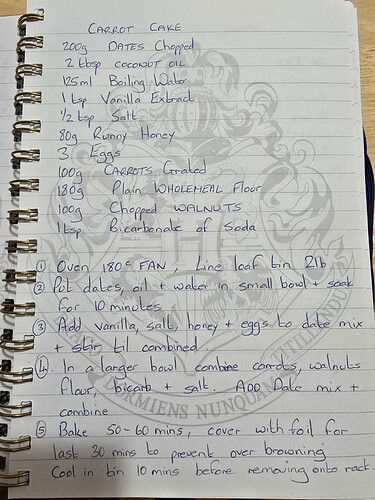 CARROT CAKE
200g DATES Chopped
2 tbsp COCONUT OIL
125ml Boiling Water
1 tsp Vanilla Extract
1/2 tsp Salt
80g Runny Honey
3 Eggs
100g CARROTS Grated
180g Plain WHOLEMEAL Floor
100g Chopped WALNUTS
1 tsp Bicarbonate of Soda
① Oven 180°c FAN, Line loaf tin 2lb
② Put dates, oil + water in small bowl + soak
for 10 minutes
③ Add vanilla, salt, honey + eggs to date mix
+ stir til combined
④. In a larger bowl combine carrots, walnuts
flour, bicarb + salt. ADD Date mix +
combine
⑤ Bake 50-60 mins, cover with foil for
last 30 mins to prevent over browning
Cool in tin 10 mins before removing onto rack.
DORMIENS NUNQUAM TITILLANDUS